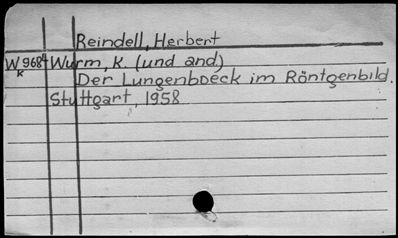 Reindell, Herbert
W 9684 Wurm, K. (und and.)
K
Der Lungenboeck im Röntgenbild.
Stuttgart, 1958